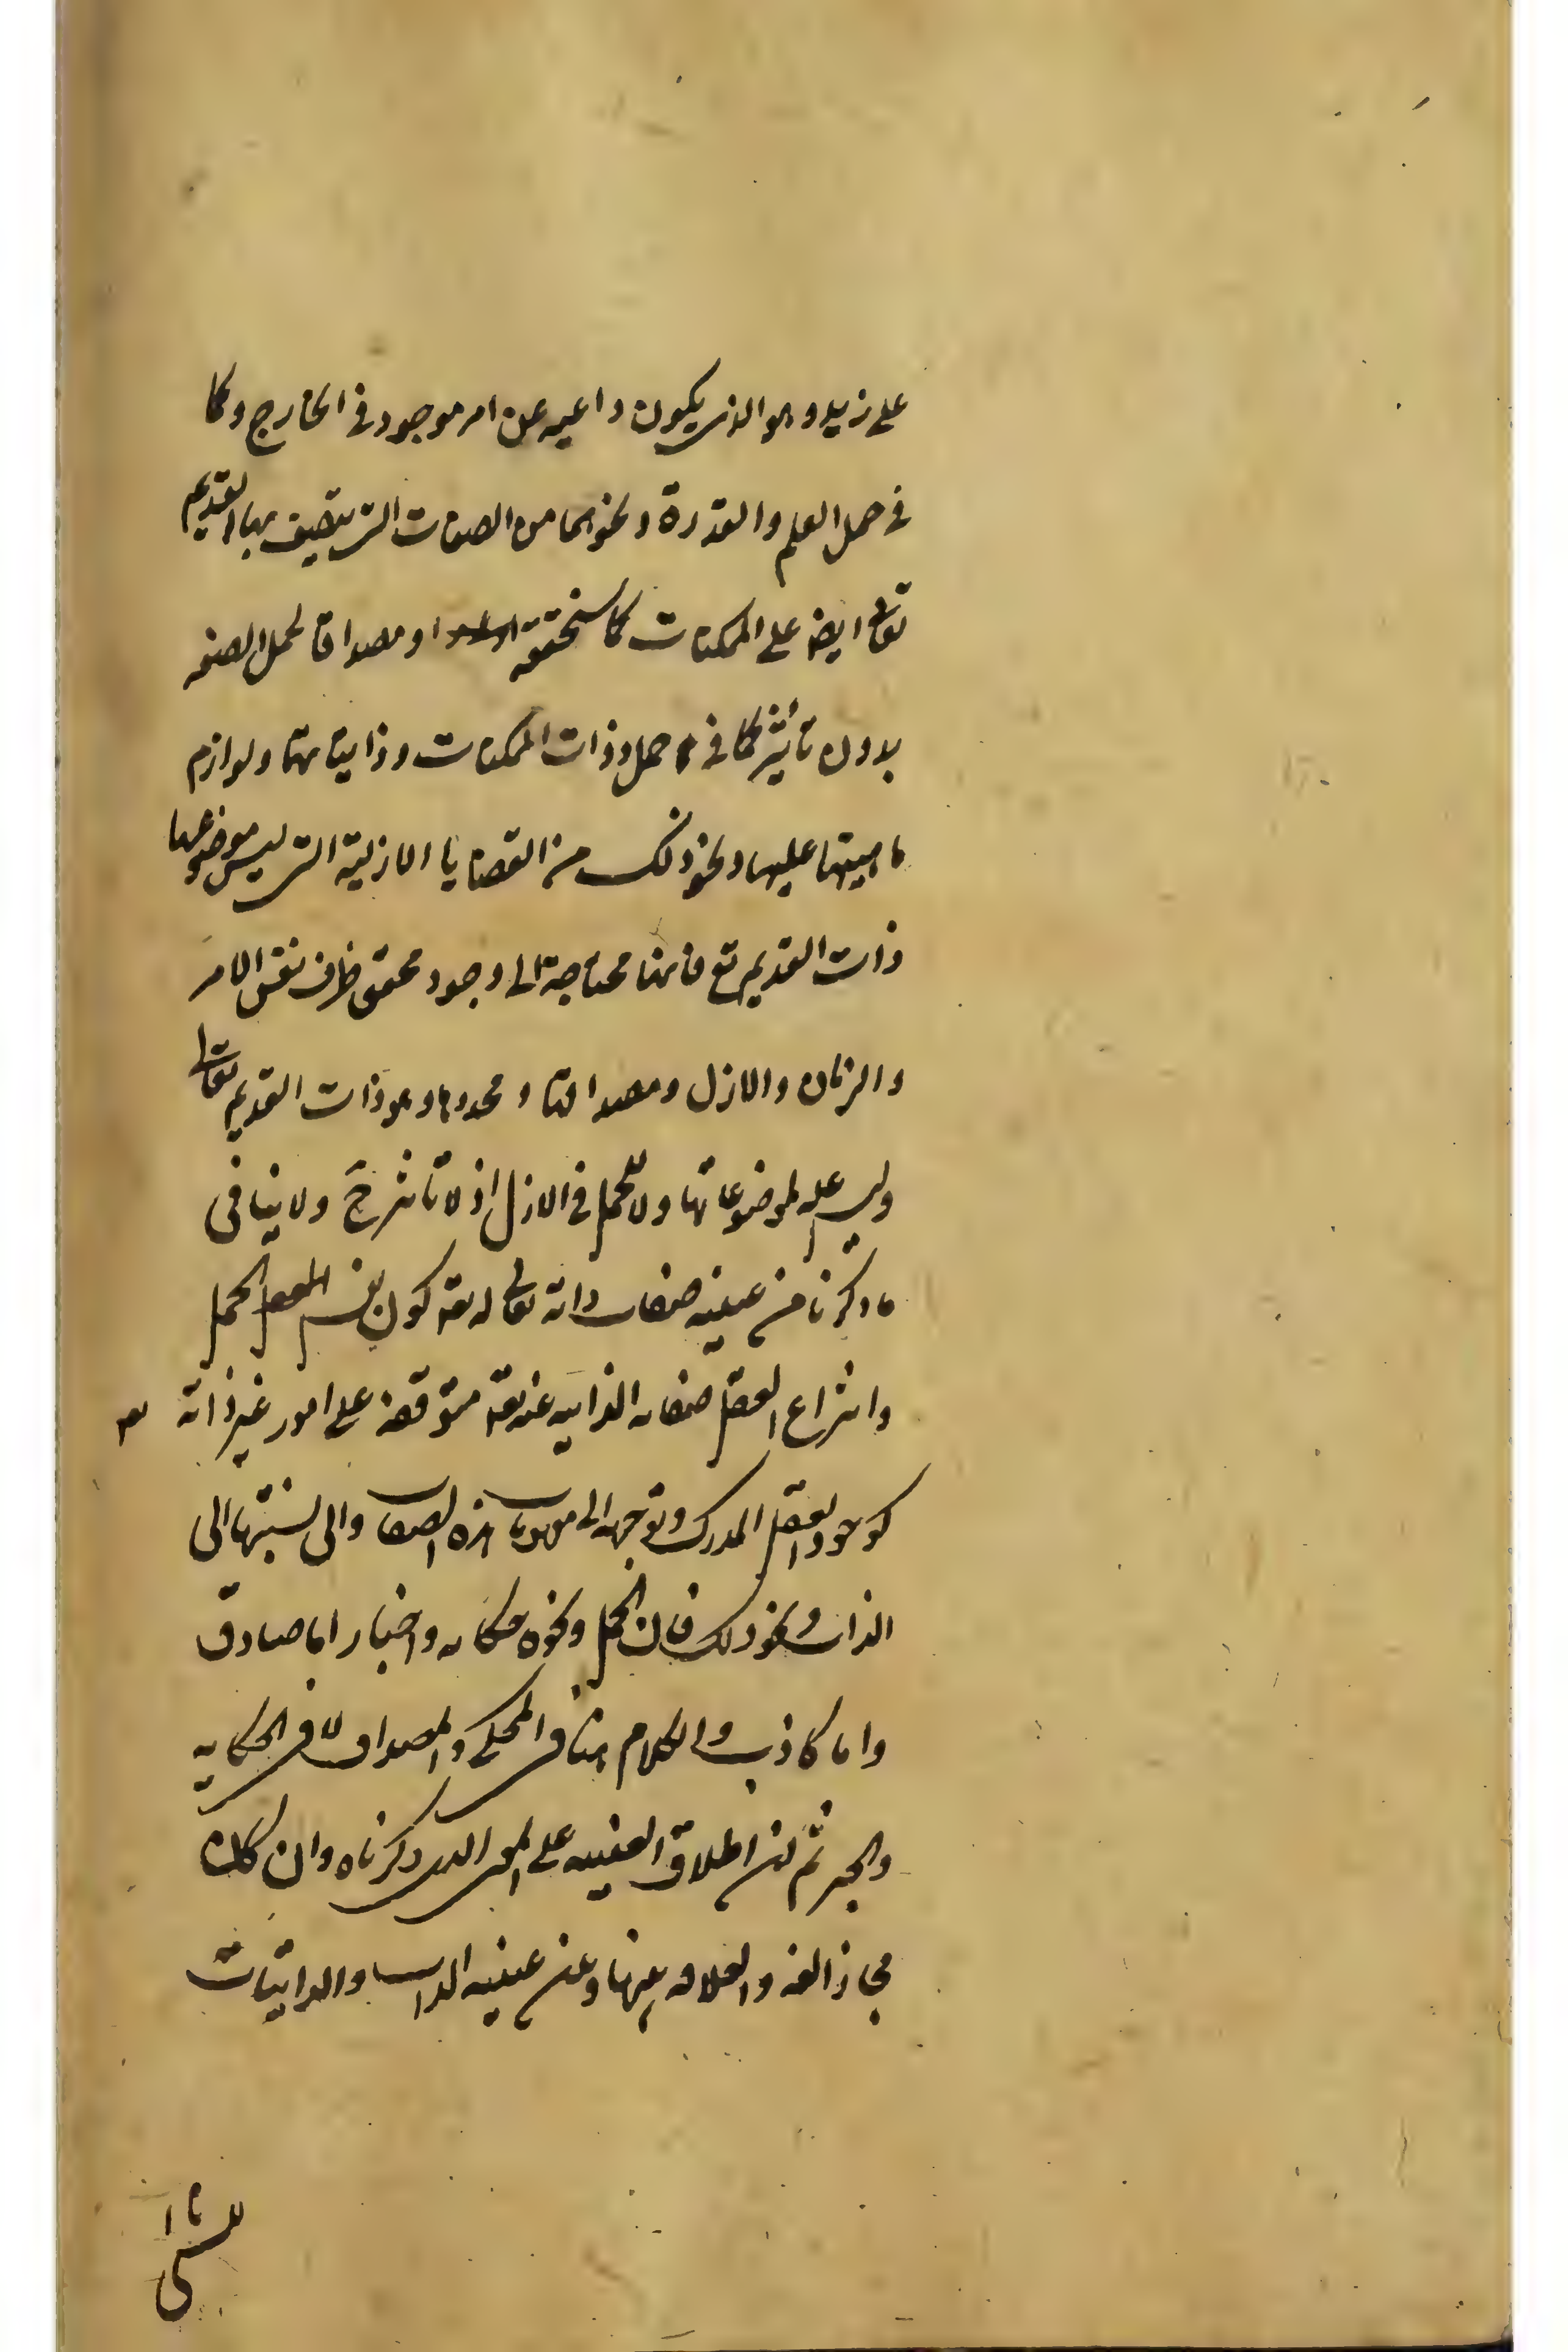 على زيد وهو الذى يكون داعيه عن امر موجود فى الخارج وكما
فى حمل العلم والقدرة ونحوهما من الصفات التى يتصف بها القديم
تعالى ايضه على الممكنات كما سنحققه او مصداقا لحمل الصفه
بدون تأثير كما فى حمل ذوات الممكنات وذاتياتها ولوازم
ماهيتها عليها ونحو ذلك من القضايا الازلية التى ليس موضوعها
ذات القديم تع فانها محتاجة الى وجود محقق ظرف نفس الامر
والزمان والازل ومصداقها ومحددها وهو ذات القديم تعالى
وليس عله لموضوعاتها ولا للحمل فى الازل اذ لا تأثير ح ولا ينافى
ما ذكرنا من عينيه صفات ذاته تعالى له تعه كون نفس الحمل
وانتزاع العقل صفاته الذاتيه عنه تعه متوقفه على امور غير ذاته تعه
كوجود العقل المدرك وتوجهه الى مفهومات هذه الصفات والى نسبتها الى
الذات ونحو ذلك فان الحمل ونحوه حكايه واخبار اما صادق
واما كاذب والكلام هنا فى المحكى والمصداق لا فى الحكايه
والخبر ثم ان اطلاق العينيه على المعنى الذى ذكرناه وان كان
مجازا لغه والعلاقه بينها وبين عينيه الذات والذاتيات
للشئ